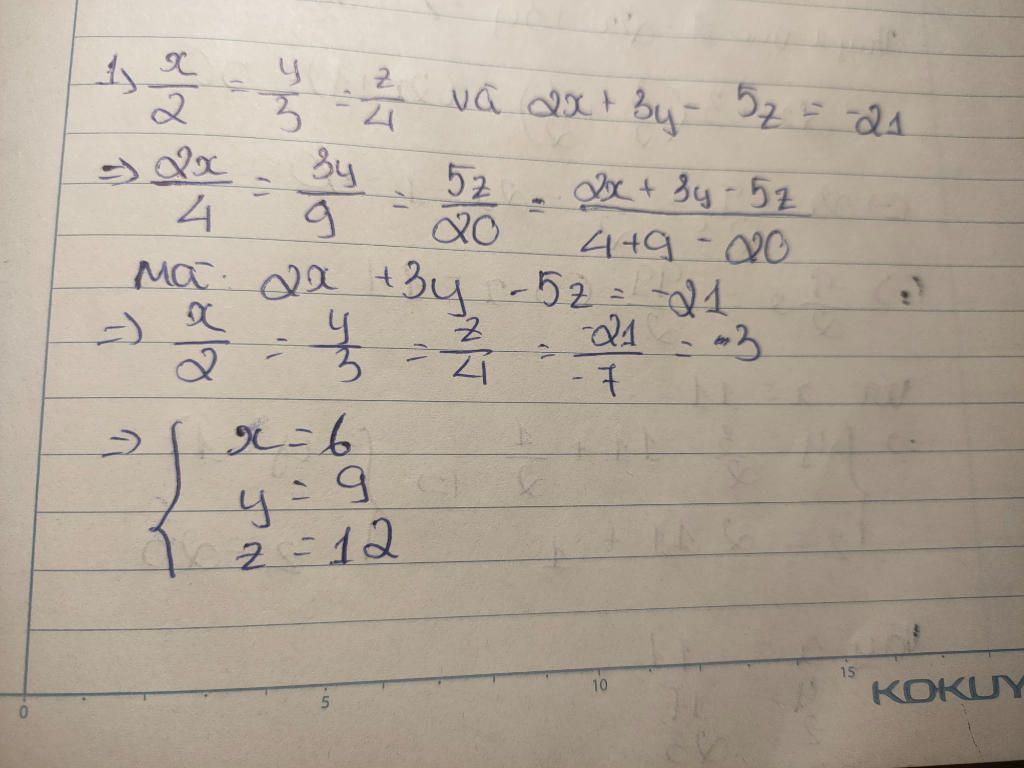 1) x/2 = y/3 = z/4 và 2x + 3y - 5z = -21
=> 2x/4 = 3y/9 = 5z/20 = (2x + 3y - 5z)/(4+9-20)
mà: 2x + 3y - 5z = -21
=> x/2 = y/3 = z/4 = -21/-7 = -3
=> { x = 6
y = 9
z = 12
0 5 10 15
KOKUY